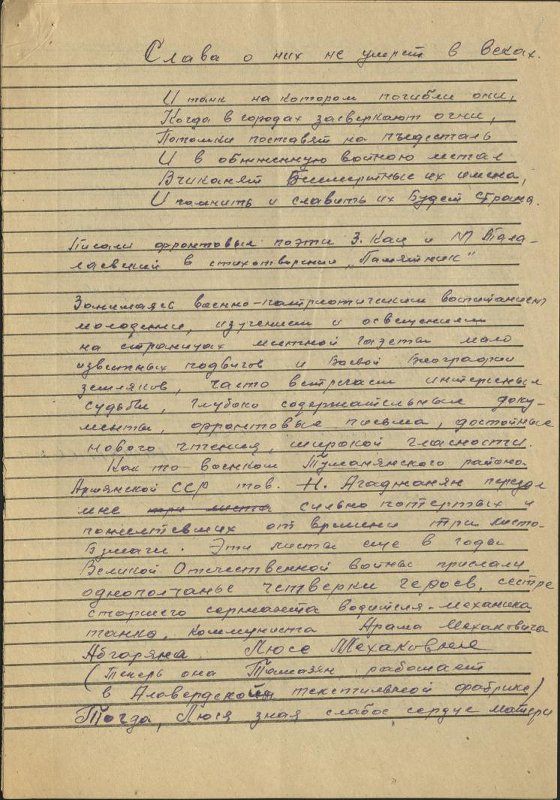 Слава о них не умрет в веках.
И танк на котором погибли они,
Когда в городах засверкают огни,
Потомки поставят на пъедесталь
И в обжженную войною метал
Вчиканят Бессмертные их имена,
И помнить и славить их будет страна.
Писали фронтовые поэты З. Кац и М Тала-
лаевский в стихотворении „Памятник"
Занимаясь военно-патриотическим воспитанием
молодежи, изучением и освещением
на страницах местной газеты мало
известных подвигов и Боевой Биографии
земляков, часто встречаем интересные
судьбы, глубоко содержательные доку-
менты, фронтовые письма, достойные
нового чтения, широкой гласности.
Как то военком Туманянского района
Армянской ССР тов. Н. Агаджанян передал
мне сильно потертых и
пожелтевших от времени три листа
Бумаги. Эти листы еще в годы
Великой Отечественной войны прислали
однополчане четверки героев, сестре
старшего сержанта водителя-механика
танка, коммуниста Арама Мехаковича
Абгаряна Люсе Мехаковне
(теперь она Тамазян работает
в Алавердской текстильной фабрике)
Тогда, Люся зная слабое сердце матери